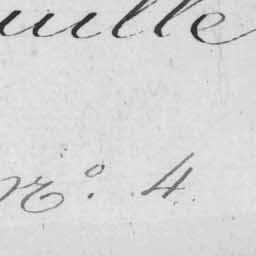 uille
N°. 4.